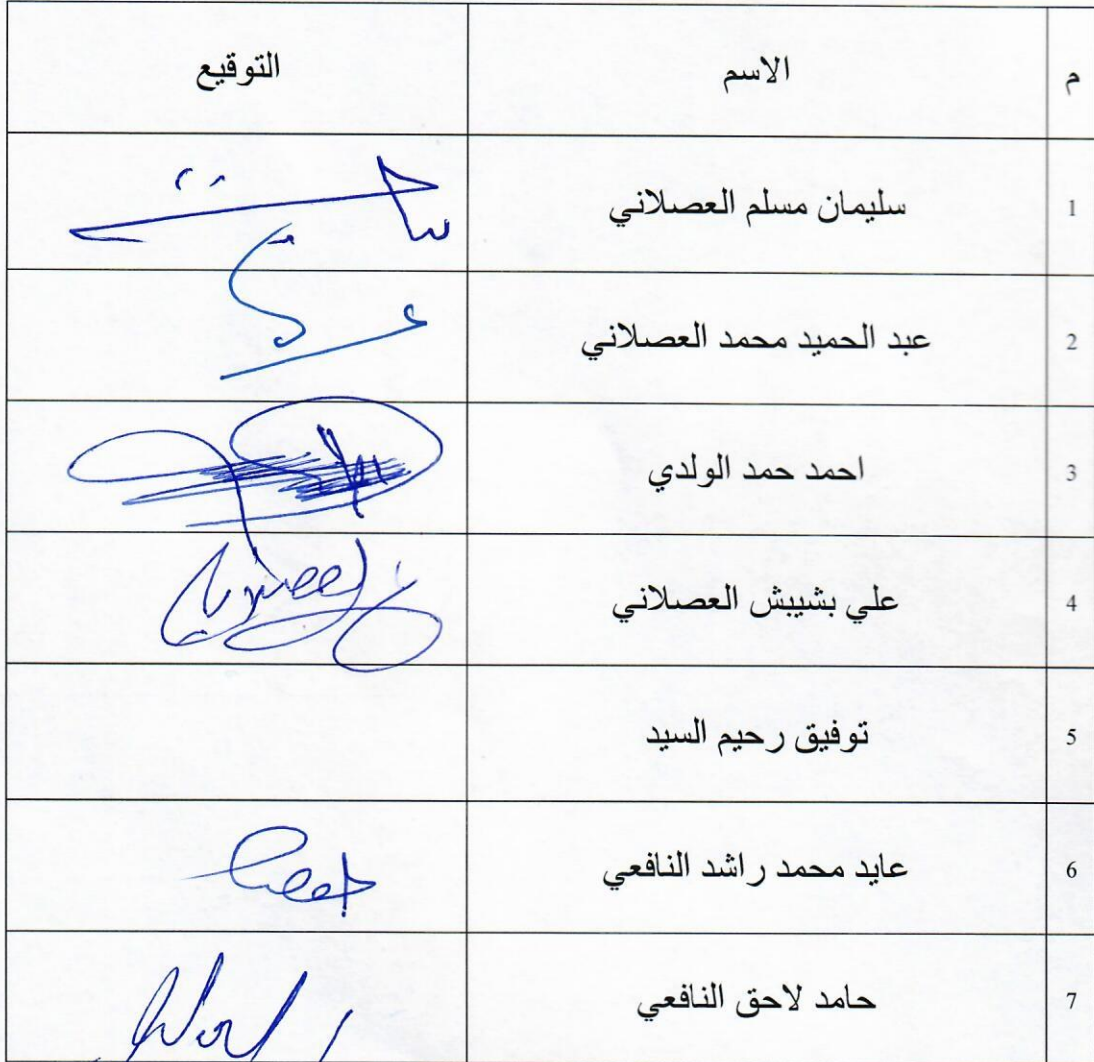 م الاسم التوقيع
1 سليمان مسلم العصلاني
2 عبد الحميد محمد العصلاني
3 احمد حمد الولدي
4 علي بشيبش العصلاني
5 توفيق رحيم السيد
6 عايد محمد راشد النافعي
7 حامد لاحق النافعي